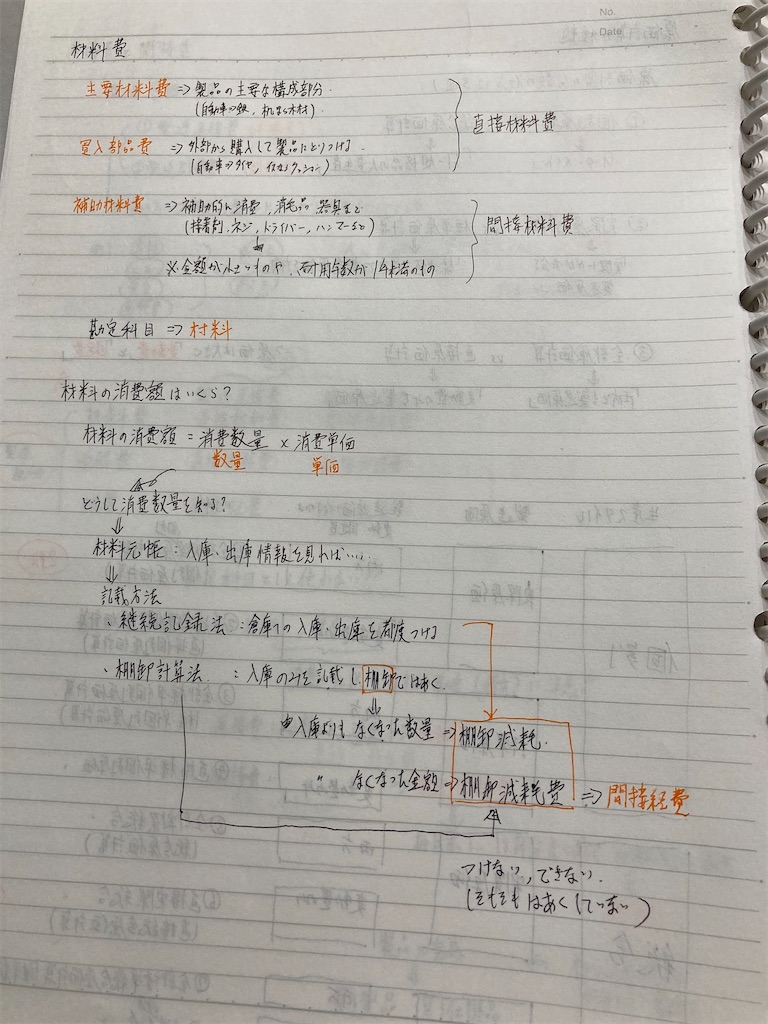 No.
Date
材料費
主要材料費 ⇒ 製品の主要な構成部分.
(自動車の鉄, 机なら木材)
直接材料費
買入部品費 ⇒ 外部から購入して製品にとりつけ.
(自動車のタイヤ, イスのクッション)
補助材料費 ⇒ 補助的に消費, 消耗品 器具など
(接着剤, ネジ, ドライバー, ハンマーなど)
間接材料費
※金額が小さいものや, 耐用年数が1年未満のもの
勘定科目 ⇒ 材料
材料の消費額はいくら?
材料の消費額 = 消費数量 × 消費単価
数量 単価
どうして消費数量を知る?
材料元帳 : 入庫・出庫情報を見れば……
記載方法
・継続記録法 : 倉庫の入庫・出庫を都度つける
・棚卸計算法 : 入庫のみを記載し, 棚卸ではあく.
入庫よりも なくなった数量 ⇒ 棚卸減耗.
〃 なくなった金額 ⇒ 棚卸減耗費 ⇒ 間接経費
つけない, できない.
(そもそもはあくしていない)